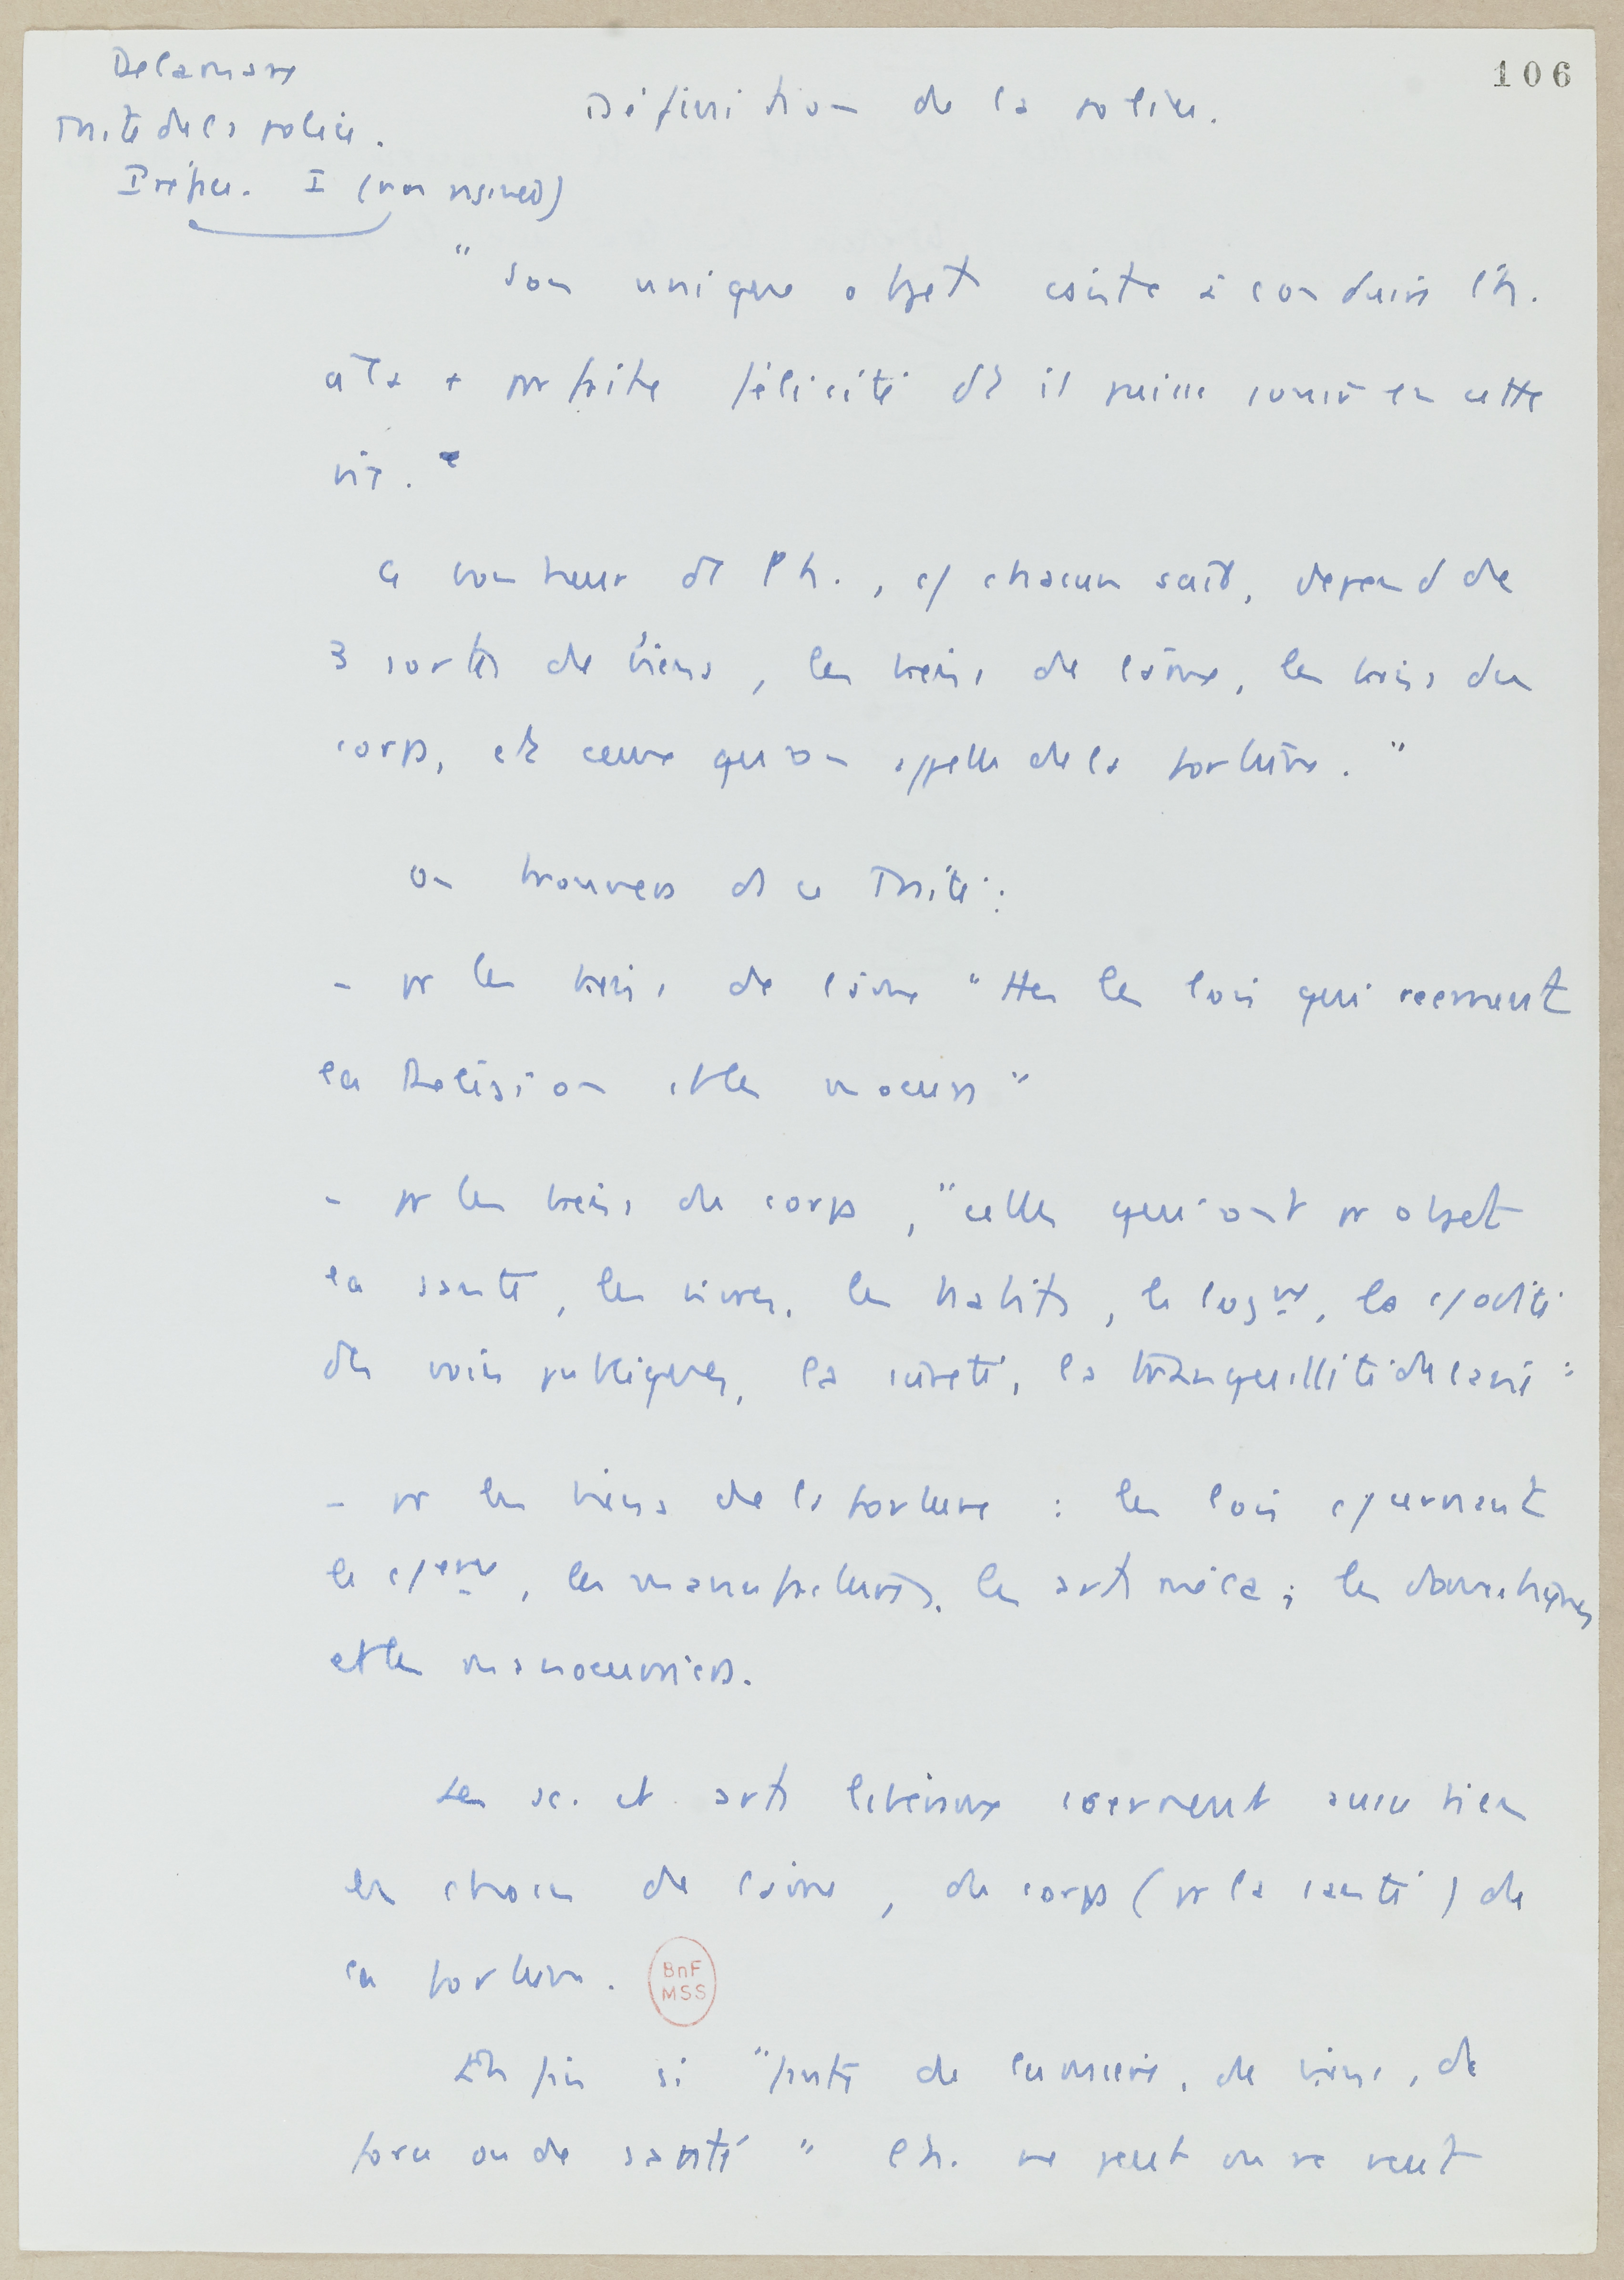 Delamare
Traité de la police.
Préface. I (non paginée)
106
Définition de la police.
"Son unique objet csiste à conduire l'h.
à la + parfaite félicité dt il puisse jouir en cette
vie."
Ce bonheur de l'h., c/ chacun sait, dépend de
3 sortes de biens, les biens de l'âme, les biens du
corps, et ceux qu'on appelle de la fortune."
On trouvera ds ce Traité :
- pr les biens de l'âme "ttes les lois qui ccernent
la Religion et les moeurs"
- pr les biens du corps, "celles qui ont pr objet
la santé, les vivres, les habits, le logmt, la c/odité
des voies publiques, la sûreté, la tranquillité de la vie"
- pr les biens de la fortune : les lois c/cernant
le c/erce, les manufactures, les arts méca ; les domestiques
et les manoeuvriers.
Les sc. et arts libéraux ccernent aussi bien
les choses de l'âme, du corps (pr la santé) de
la fortune.
BnF
MSS
Enfin si "faute de lumière, de biens, de
force ou de santé" l'h. ne peut ou ne veut